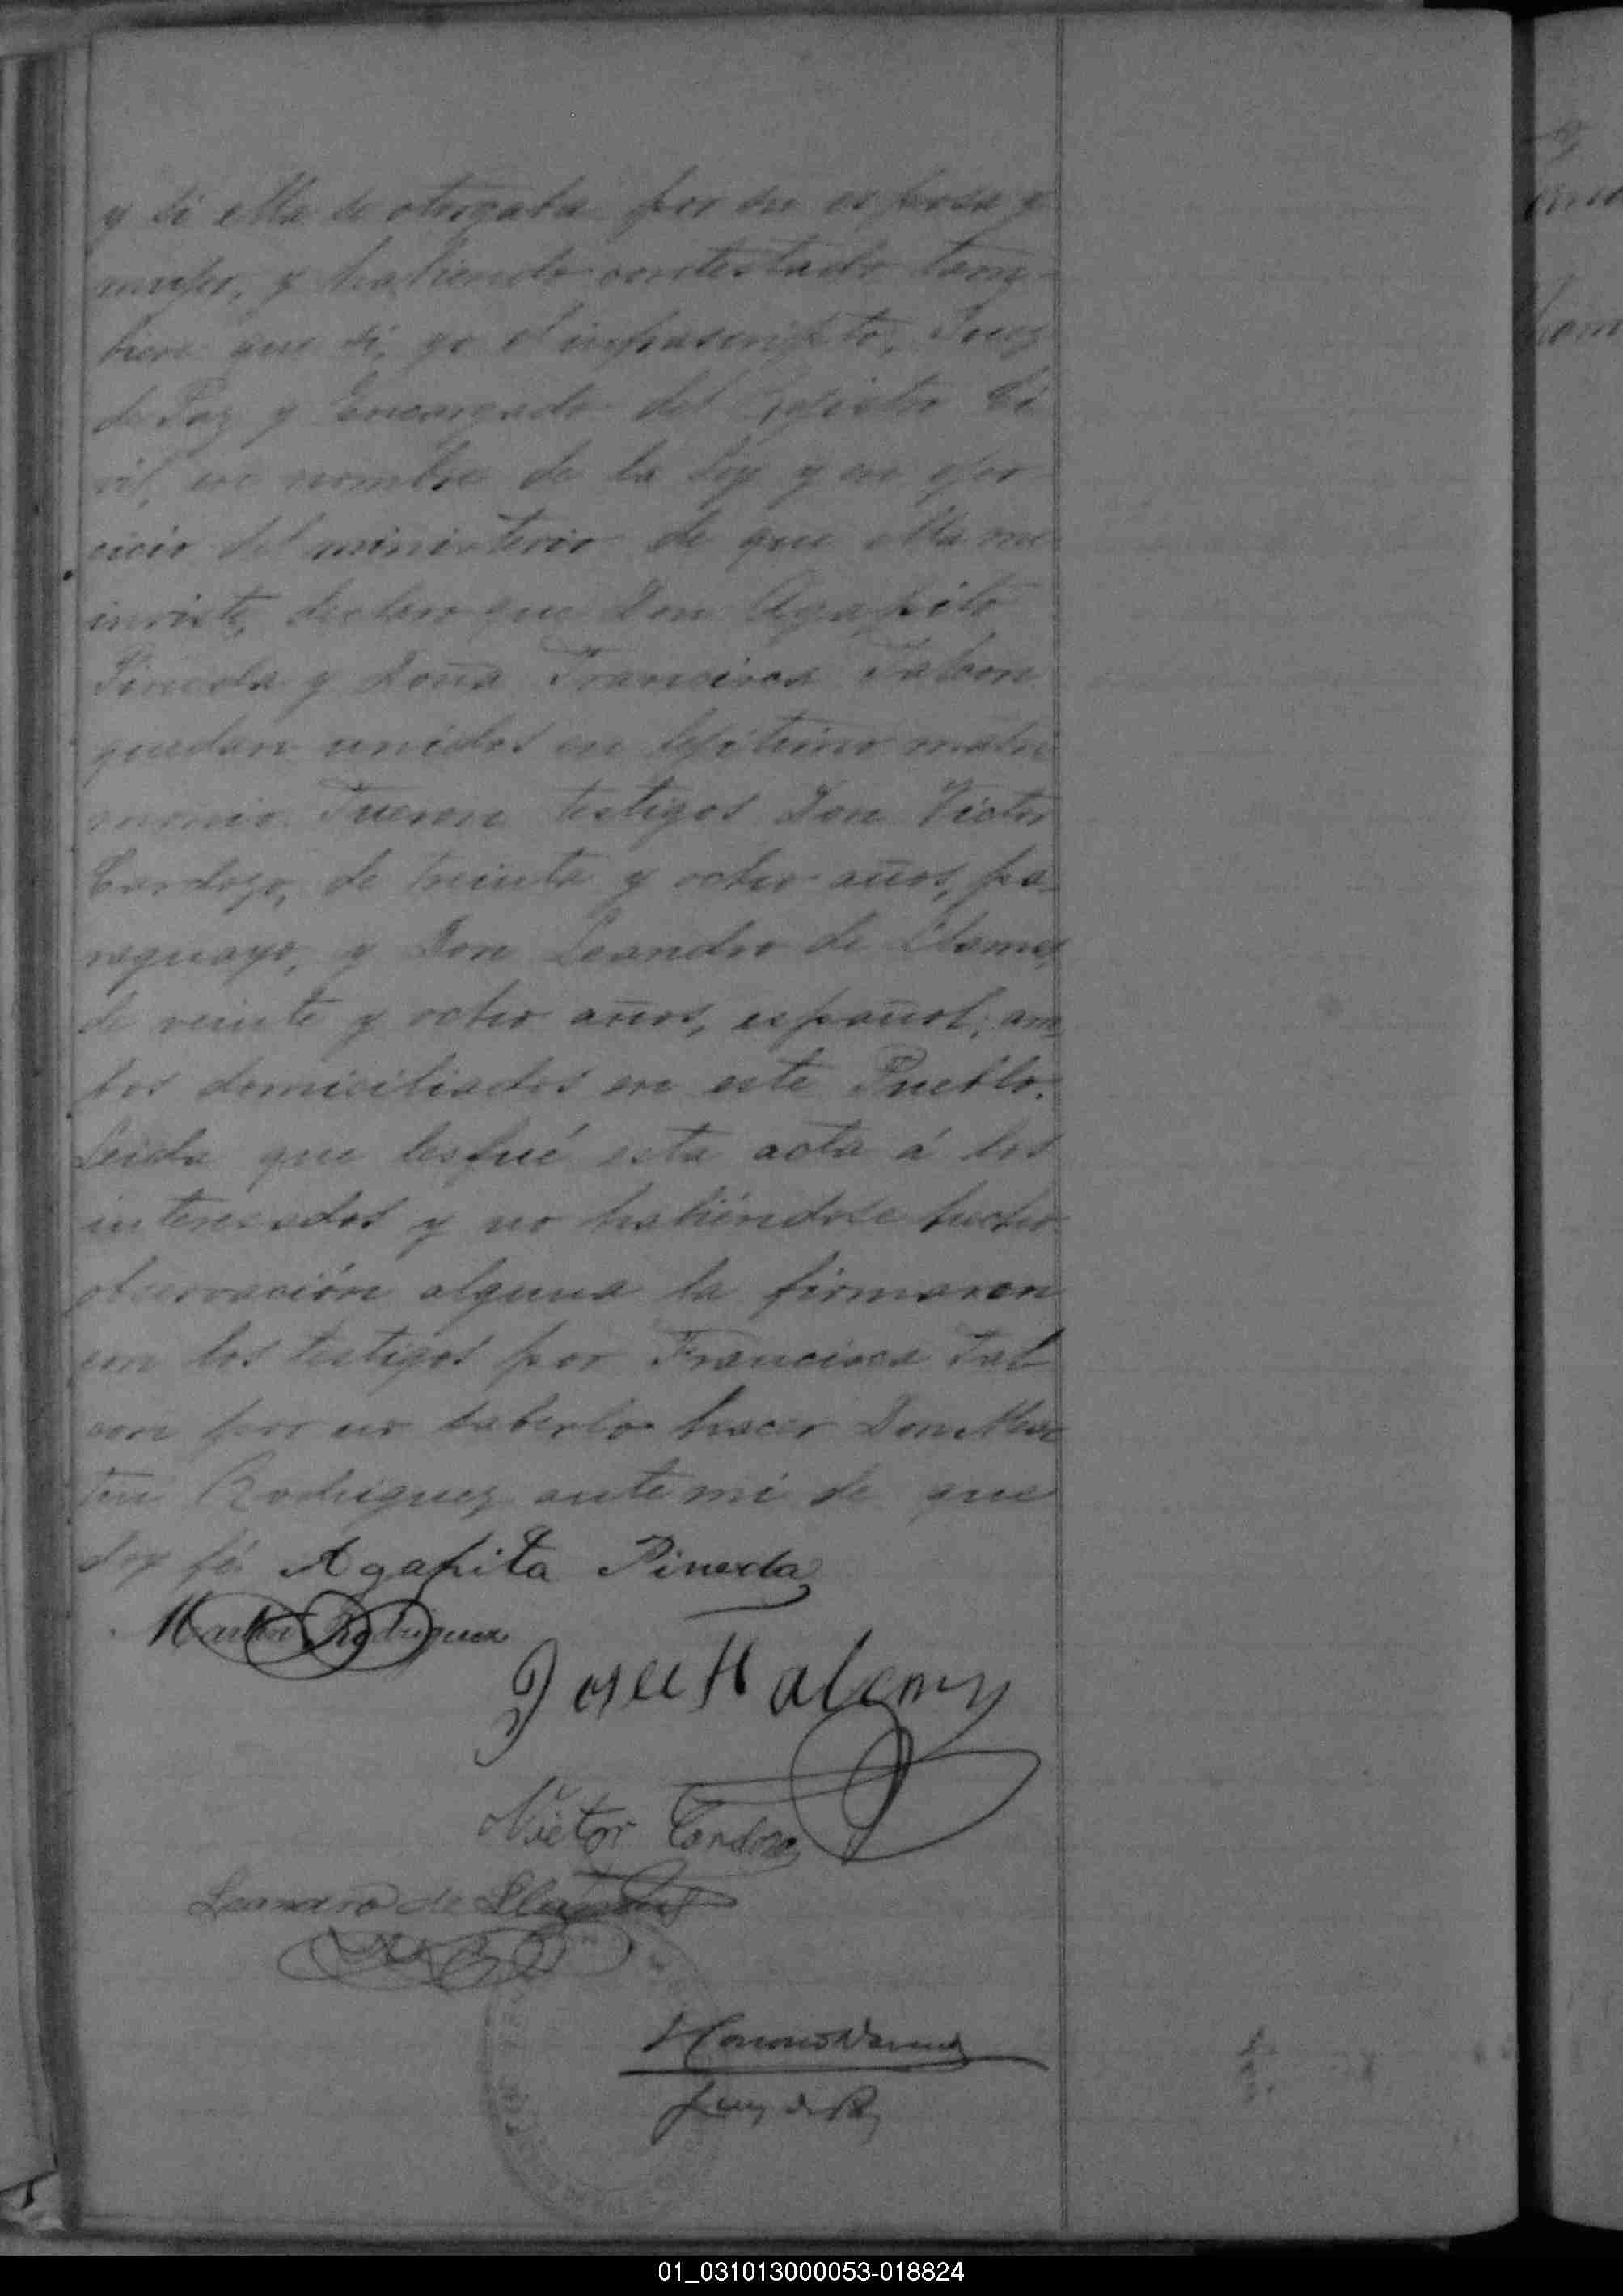 y si ella se otorgaba por su esposa y
mujer, y habiendo contestado tam-
bien que sí, yo el infrascripto, Juez
de Paz y Encargado del Registro Ci
vil, en nombre de la Ley y en ejer
cicio del ministerio de que ella me
inviste, declaro que Don Agapito
Pineda y Doña Francisca Talcon
quedan unidos en lejitimo matri
monio. Fueron testigos Don Victor
Cardozo, de treinta y ocho años, pa-
raguayo, y Don Leandro de
de veinte y ocho años, español; am
bos domiciliados en este Pueblo.
Leida que les fué esta acta á los
interesados y no habiéndose hecho
observación alguna la firmaron
con los testigos por Francisca Tal
con por no saberlo hacer Don Mar
tin Rodriguez ante mi de que
doy fé. Agapita Pineda
Martin Rodriguez
Jose
Victor Cardozo
Leandro de
Juez de Paz
01_031013000053-018824